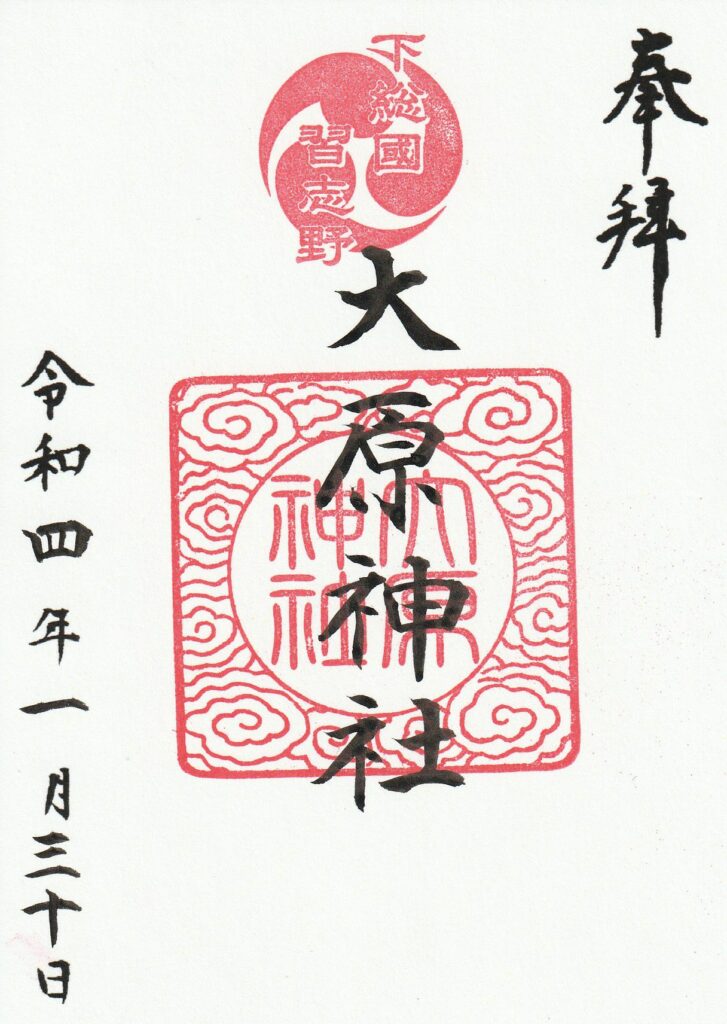 奉拝
下総國
習志野
大原神社
大原
神社
令和四年一月三十日